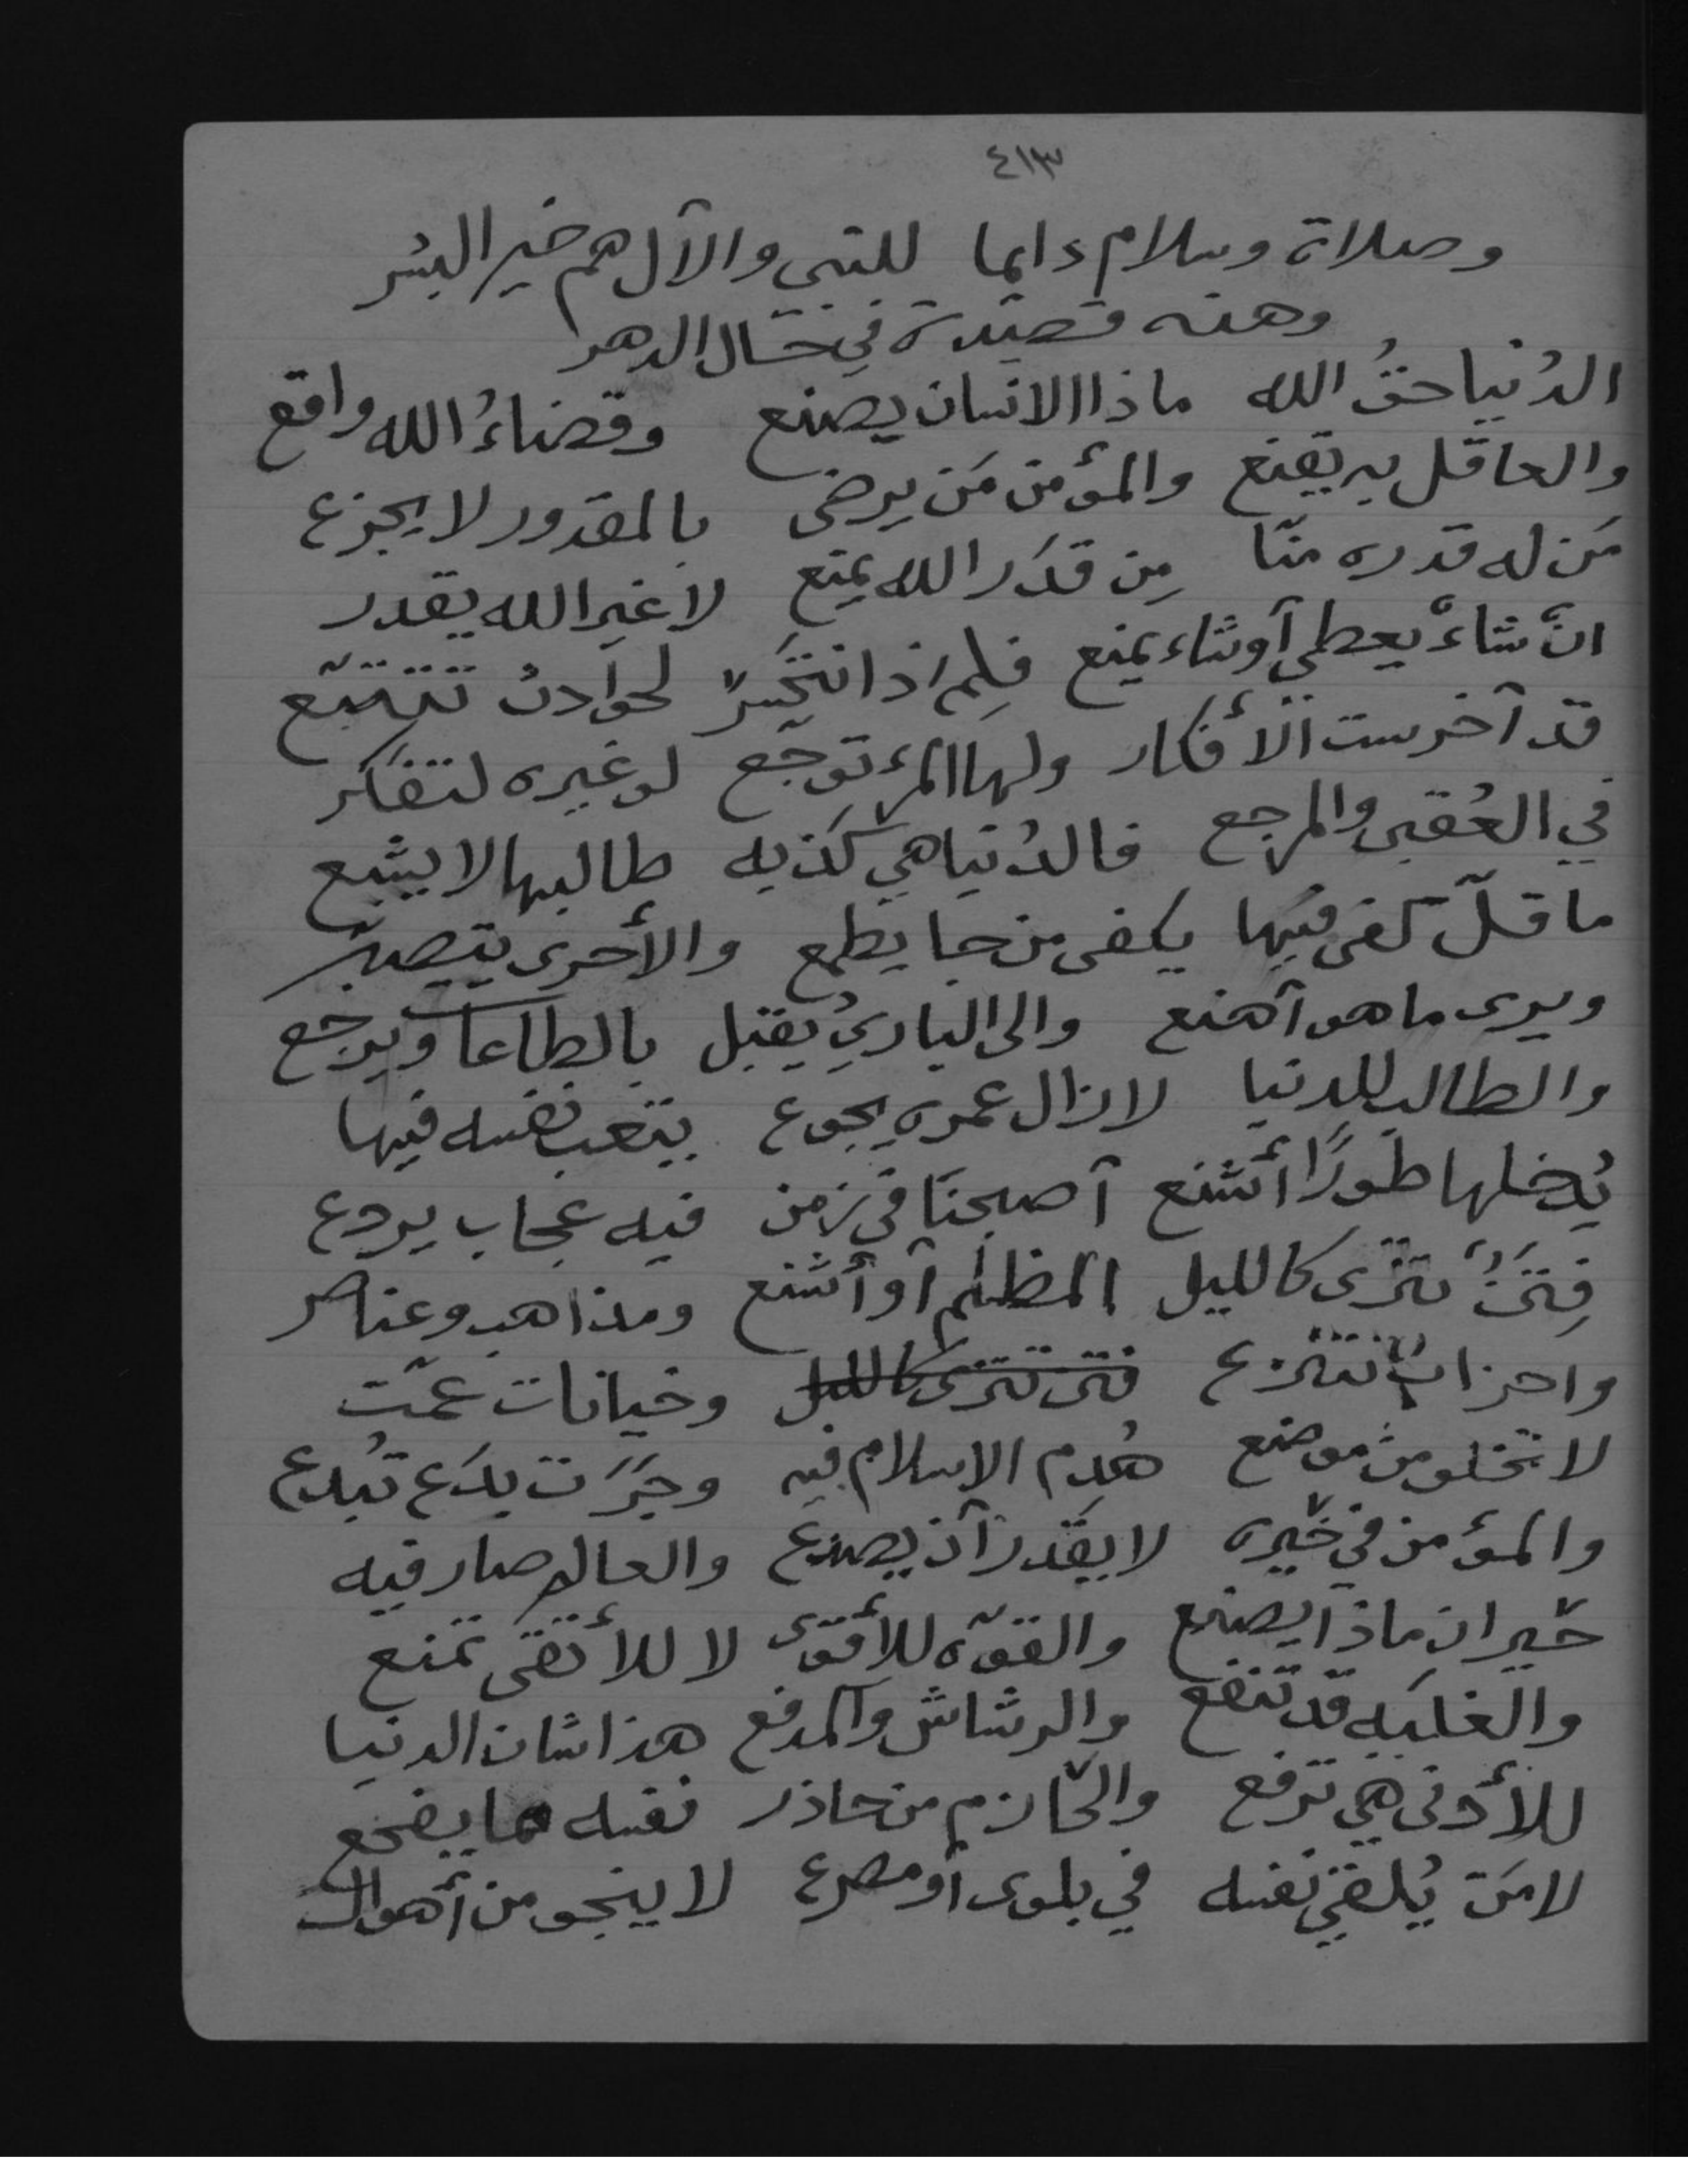 ٤١٣
وصلاة وسلام دايما للنبي والآل هم خير البشر
وهذه قصيدة في حال الدهر
الدُنيا حقُ الله ماذا الانسان يصنع وقضاءُ الله واقع
والعاقل به يقنع والمؤمن مَن يرضى بالمقدور لا يجزع
مَن له قدره منّا مِن قدَر الله يمنع لا غير الله يقدر
انْ شاءْ يعطي آو شاء يمنع فلِم اذا نتحَيّر لحوادث تتتبّع
قد آخرست الأفكار ولها المرء توجّع لو غيره لتفكر
في العُقبى والمرجع فالدُنيا هي كذبه طالبها لا يشبع
ما قلّ كفى فيها يكفى من جا يطمع والأحرى يتصبّر
ويرى ما هو آهنع والى الباريُ يقبل بالطاعات ويرجع
والطالب للدنيا لا زال عمره يجوع يتعب نفسه فيها
يُدخلها طورًا أشنع آصبحنا في زمن فيه عجاب يردع
فِتَنٌ تترى كالليل المظلم آو أشنع ومذاهب وعناصر
واحزابٌ تتنزع فتن تترى كالليل وخيانات عمّت
لا تخلو من موضع هُدم الاسلام فيه وجَرَت بدَع تبُدع
والمؤمن في حَيره لا يقدر آن يصدع والعالم صار فيه
حَيران ماذا يصنع والقوّه للأقوى لا للأتقى تمنع
والغلبَه قد تنفع والرشاش والمدفع هذا شان الدنيا
للأدنى هي ترفع والحازم من حاذر نفسه مما يفجع
لا مَن يُلقي نفسه في بلوى آو مصرع لا ينجو من أهوال